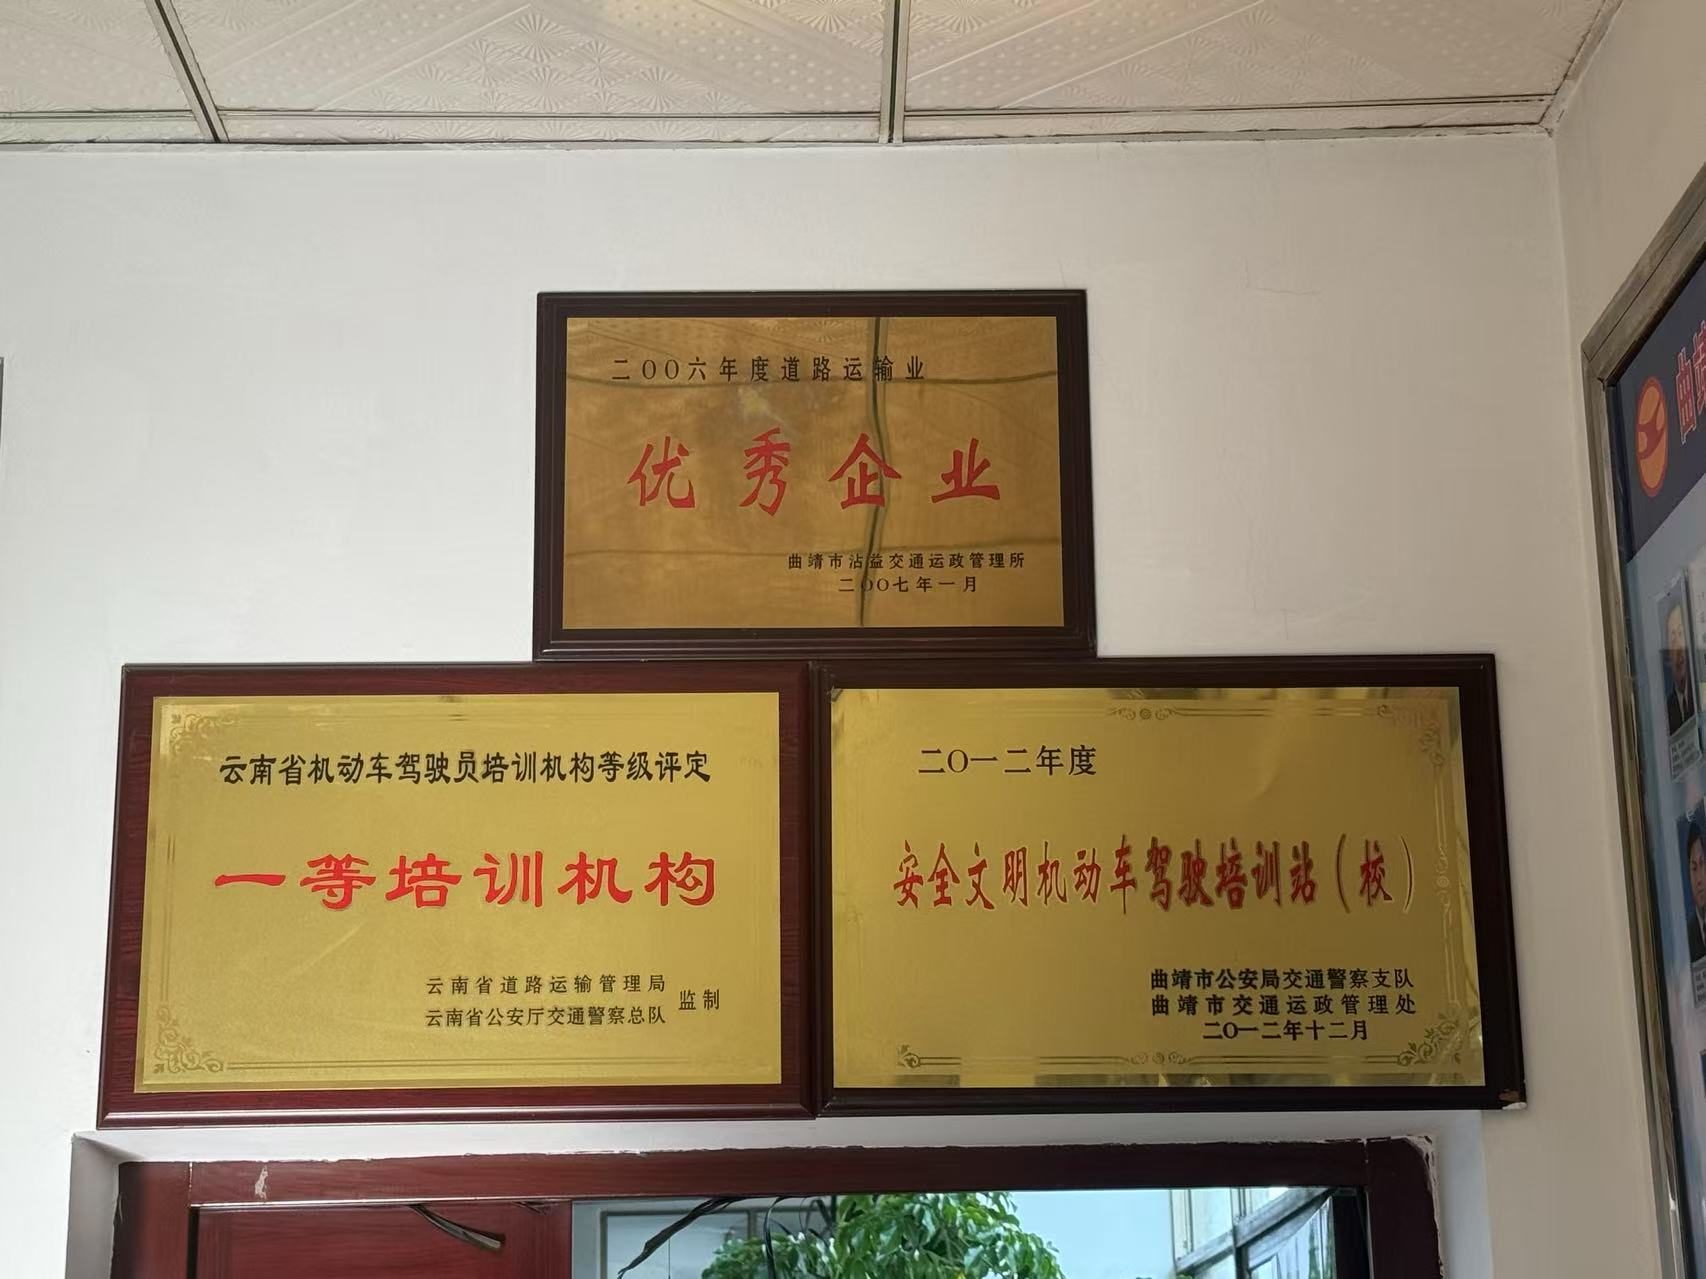 二OO六年度道路运输业
优秀企业
曲靖市沾益交通运政管理所
二OO七年一月
云南省机动车驾驶员培训机构等级评定
一等培训机构
云南省道路运输管理局
云南省公安厅交通警察总队
监制
二O一二年度
安全文明机动车驾驶培训站（校）
曲靖市公安局交通警察支队
曲靖市交通运政管理处
二O一二年十二月
曲靖